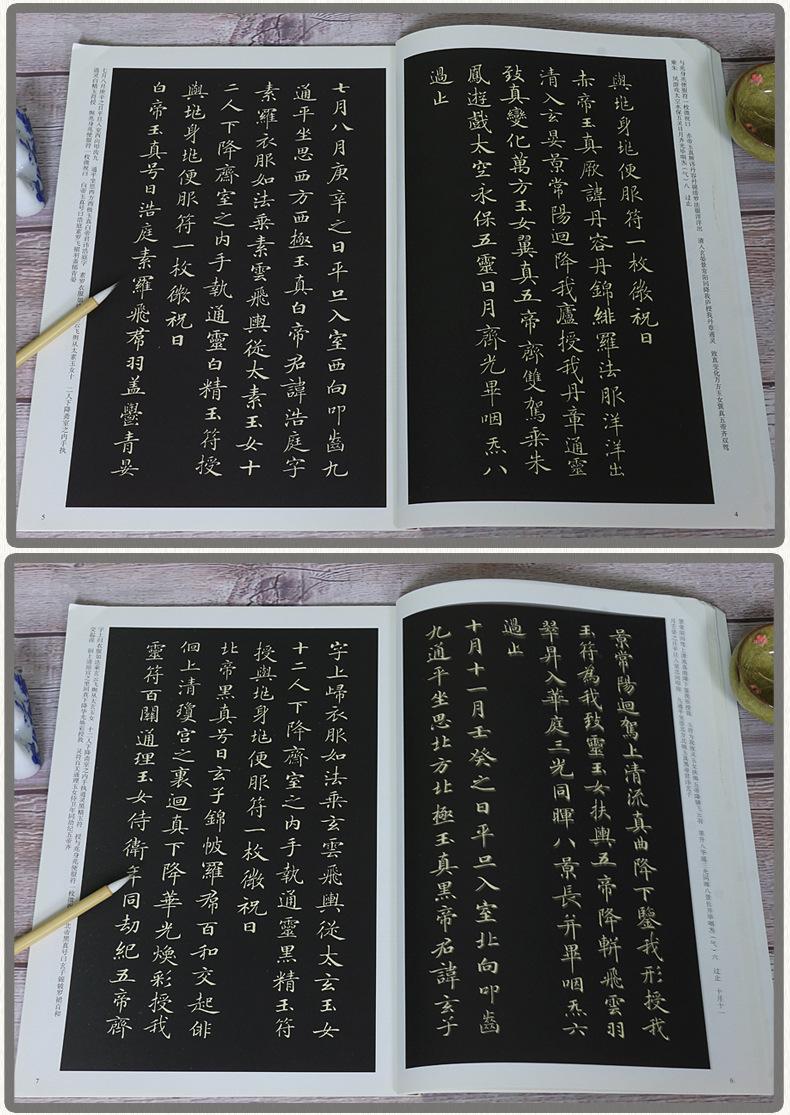 與兆身兆便服符一枚微祝曰
赤帝玉真厥諱丹容丹錦緋羅法服洋洋出
清入玄晏景常陽迴降我廬授我丹章通靈
致真變化萬方玉女翼真五帝齊雙駕乘朱
鳳遊戲太空永保五靈日月齊光畢咽炁八
過止
4
七月八月庚辛之日平旦入室西向叩齒九
通平坐思西方西極玉真白帝君諱浩庭字
素羅衣服如法乘素雲飛輿從太素玉女十
二人下降齋室之内手執通靈白精玉符授
與兆身兆便服符一枚微祝曰
白帝玉真号曰浩庭素羅飛帬羽盖鬱青晏
5
景常陽迴駕上清流真曲降下鑒我形授我
玉符為我致靈玉女扶輿五帝降軿飛雲羽
翠昇入華庭三光同暉八景長并畢咽炁六
過止
十月十一月壬癸之日平旦入室北向叩齒
九通平坐思北方北極玉真黑帝君諱玄子
6
字上歸衣服如法乘玄雲飛輿從太玄玉女
十二人下降齋室之内手執通靈黑精玉符
授與兆身兆便服符一枚微祝曰
北帝黑真号曰玄子錦帔羅帬百和交起俳
徊上清瓊宮之裏迴真下降華光煥彩授我
靈符百關通理玉女侍衛年同劫紀五帝齊
7